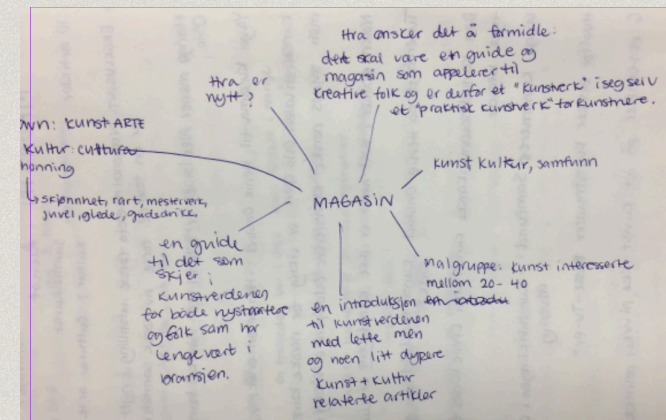 Hva ønsker det å formidle:
det skal være en guide og
magasin som appelerer til
kreative folk og er derfor et "kunstverk" i seg selv
et "praktisk kunstverk" for kunstnere.
Hva er
nytt?
wn: KUNST ARTE
Kultur: cultura
honning
skjønnhet, rart, mesterverk,
juvel, glede, gudedrikk,
MAGASIN
kunst kultur, samfunn
målgruppe: kunst interesserte
mellom 20-40
en guide
til det som
skjer i
kunstverdenen
for både nystartere
og folk som har
lenge vært i
bransjen.
en introduksjon
til kunstverdenen
med lette men
og noen litt dypere
kunst + kultur
relaterte artikler